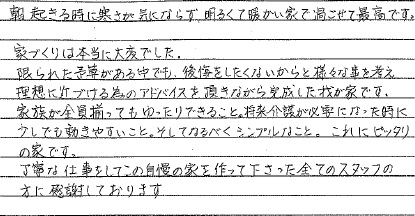 朝起きる時に寒さが気にならず、明るくて暖かい家で過ごせて最高です。
家づくりは本当に大変でした。
限られた予算がある中でも、後悔をしたくないからと様々な事を考え
理想に近づける為のアドバイスを頂きながら完成した我が家です。
家族が全員揃ってもゆったりできること。将来介護が必要になった時に
少しでも動きやすいこと。そしてなるべくシンプルなこと。これにピッタリ
の家です。
丁寧な仕事をしてこの自慢の家を作って下さった全てのスタッフの
方に感謝しております